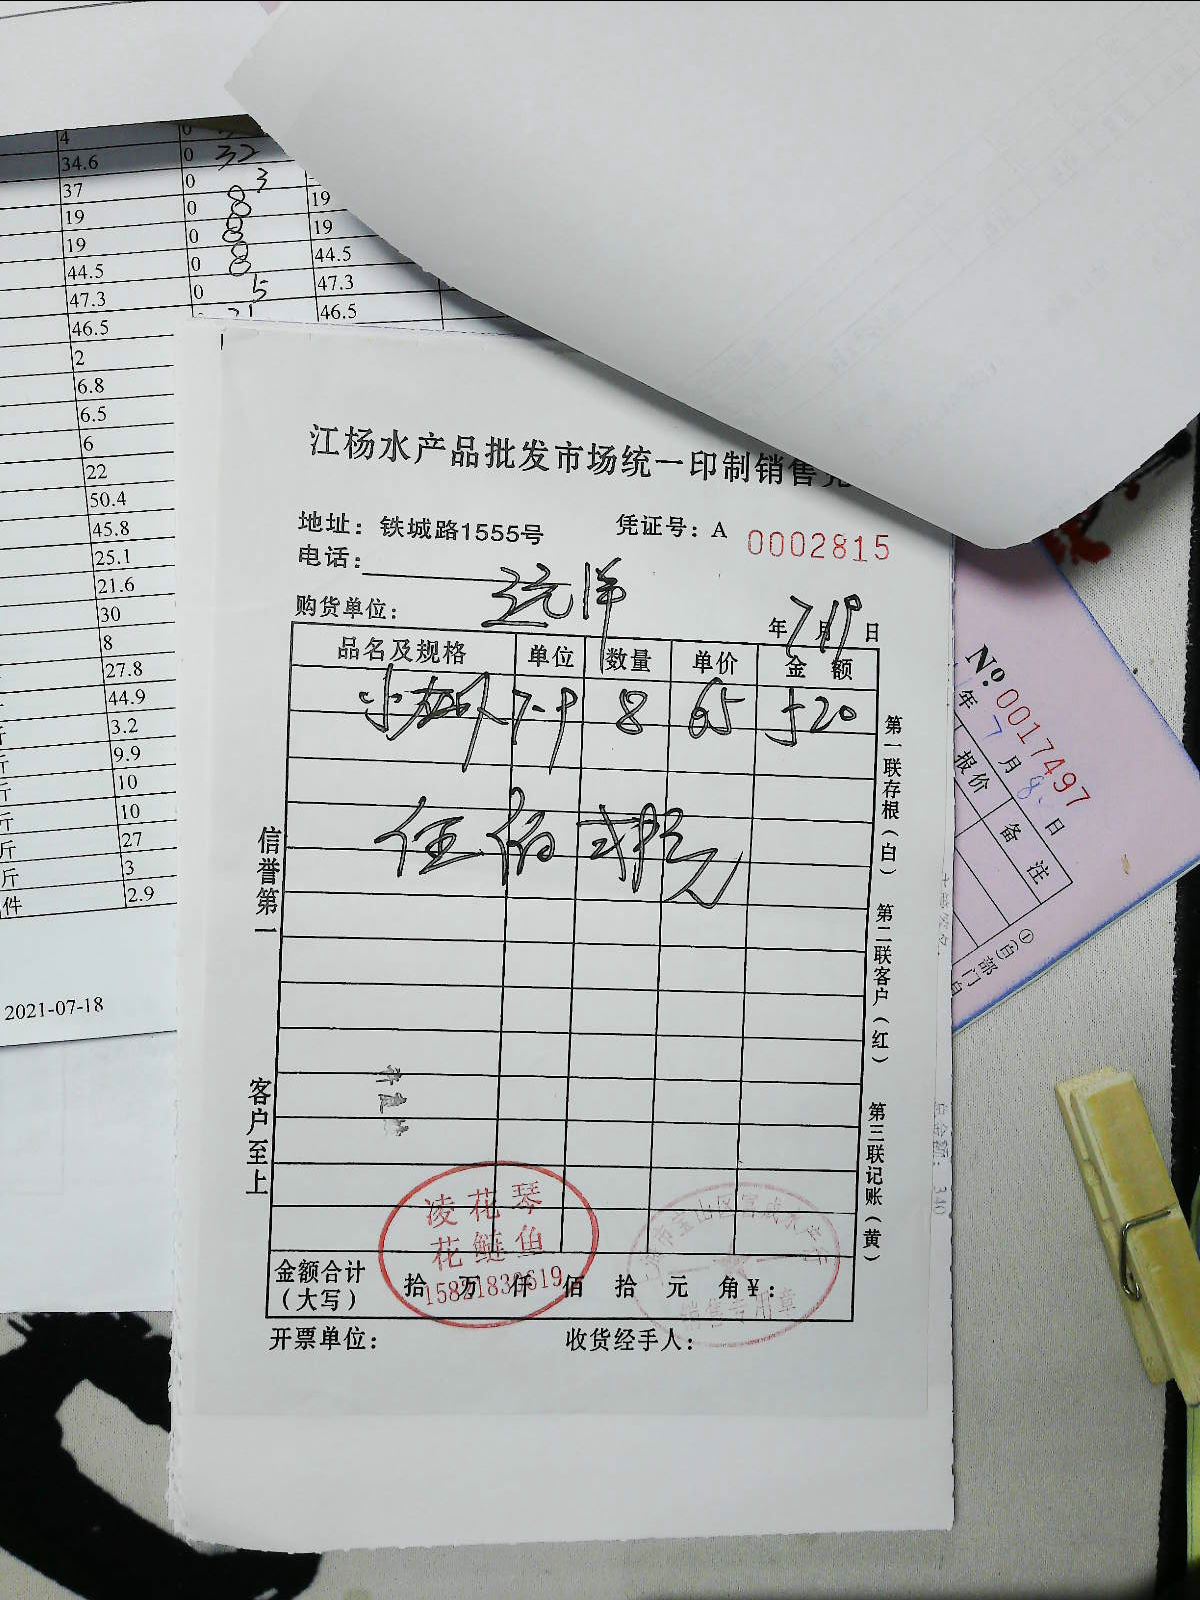 4
34.6 0 32
37 0 3
19 0 8 19
19 0 8 19
44.5 0 8 44.5
47.3 0 5 47.3
46.5 46.5
2
6.8
6.5
6
22
50.4
45.8
25.1
21.6
30
8
27.8
44.9
3.2
斤 9.9
斤 10
斤 10
斤 27
斤 3
件 2.9
2021-07-18
江杨水产品批发市场统一印制销售
地址：铁城路1555号 凭证号：A 0002815
电话：
购货单位： 洋 年7月19日
品名及规格 单位 数量 单价 金额
小 7-9 8 65 520
伍佰贰拾元
信誉第一
客户至上
第一联存根（白）
第二联客户（红）
第三联记账（黄）
凌花琴
花鲢鱼
金额合计（大写） 拾 万 仟 佰 拾 元 角 ¥：
市宝山区富成水产行
销售专用章
开票单位： 收货经手人：
№.0017497
年7月8日
报价 备注
①(白)部门
总金额：340